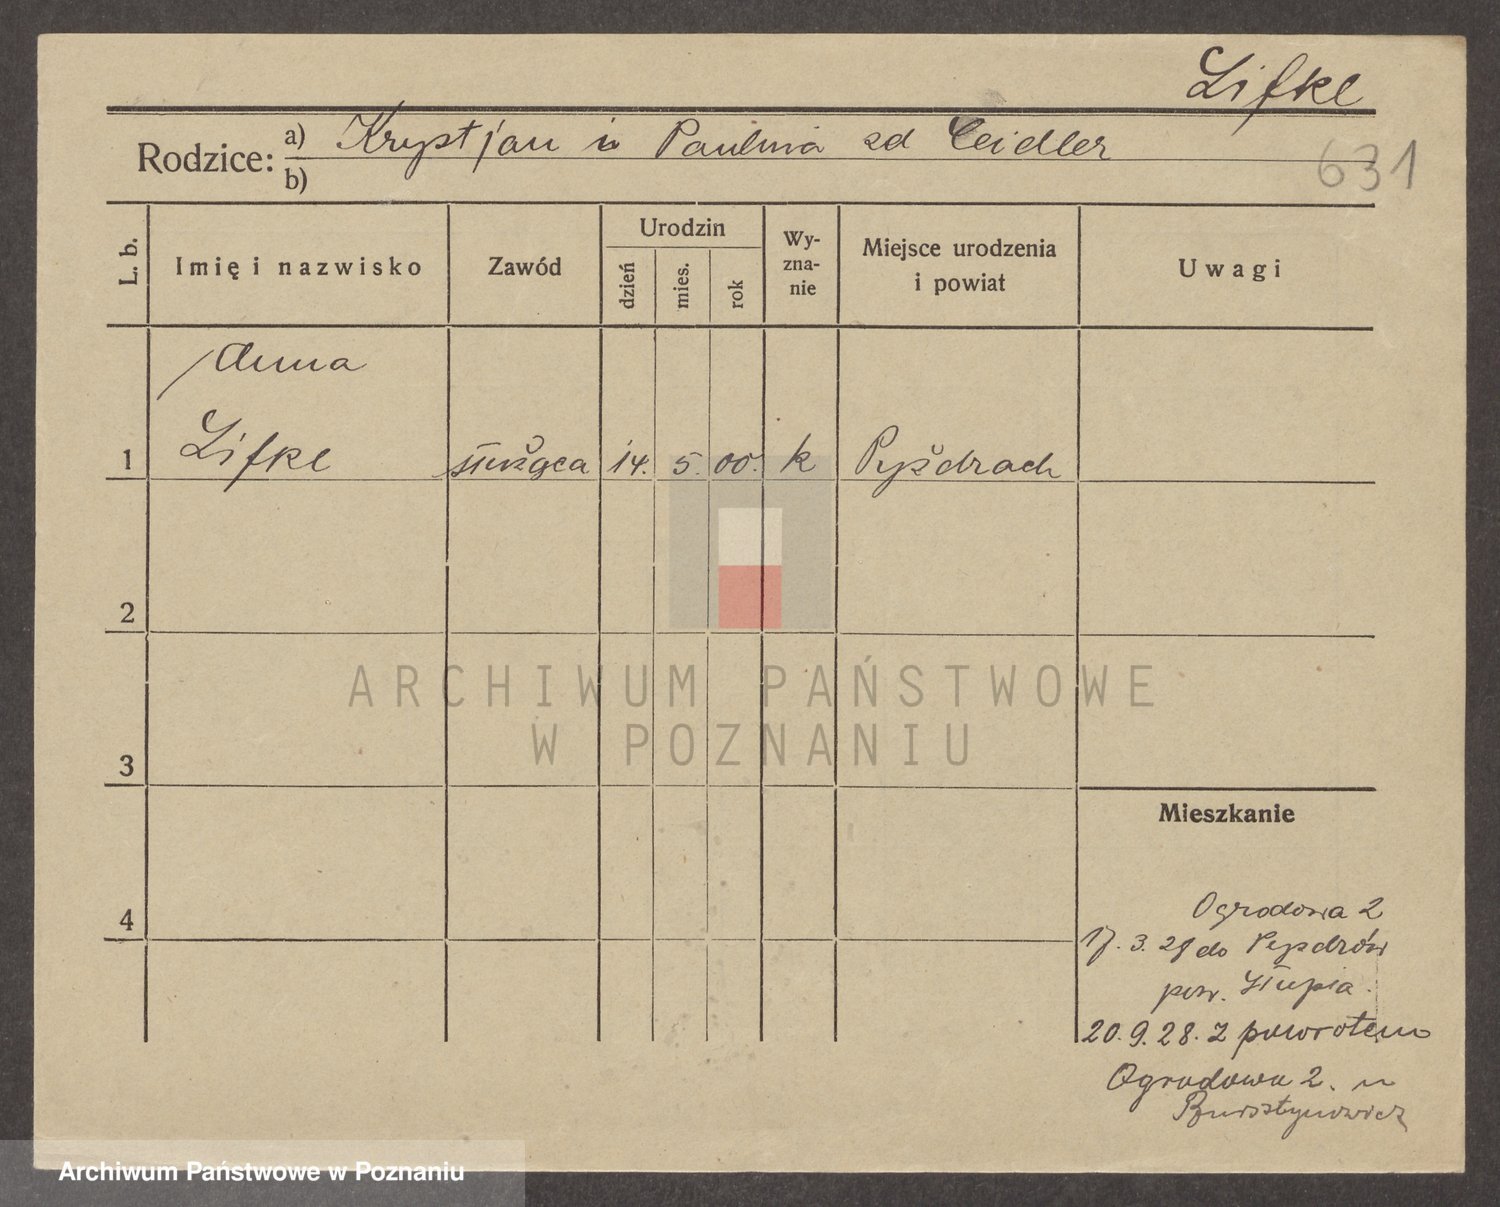 Lifke
Rodzice: a) Krystjan i Paulina zd Ceidler
b)
631
L. b.
Imię i nazwisko
Zawód
Urodzin
dzień
mies.
rok
Wy-
zna-
nie
Miejsce urodzenia
i powiat
Uwagi
Anna
1 Lifke służąca 14. 5. 00. k Pyždrach
2
3
4
Mieszkanie
Ogrodowa 2
17. 3. 28 do Pyzdrów
pow. Słupia.
20. 9. 28. z powrotem
Ogrodowa 2. u
Bursztynowicz
ARCHIWUM PAŃSTWOWE
W POZNANIU
Archiwum Państwowe w Poznaniu